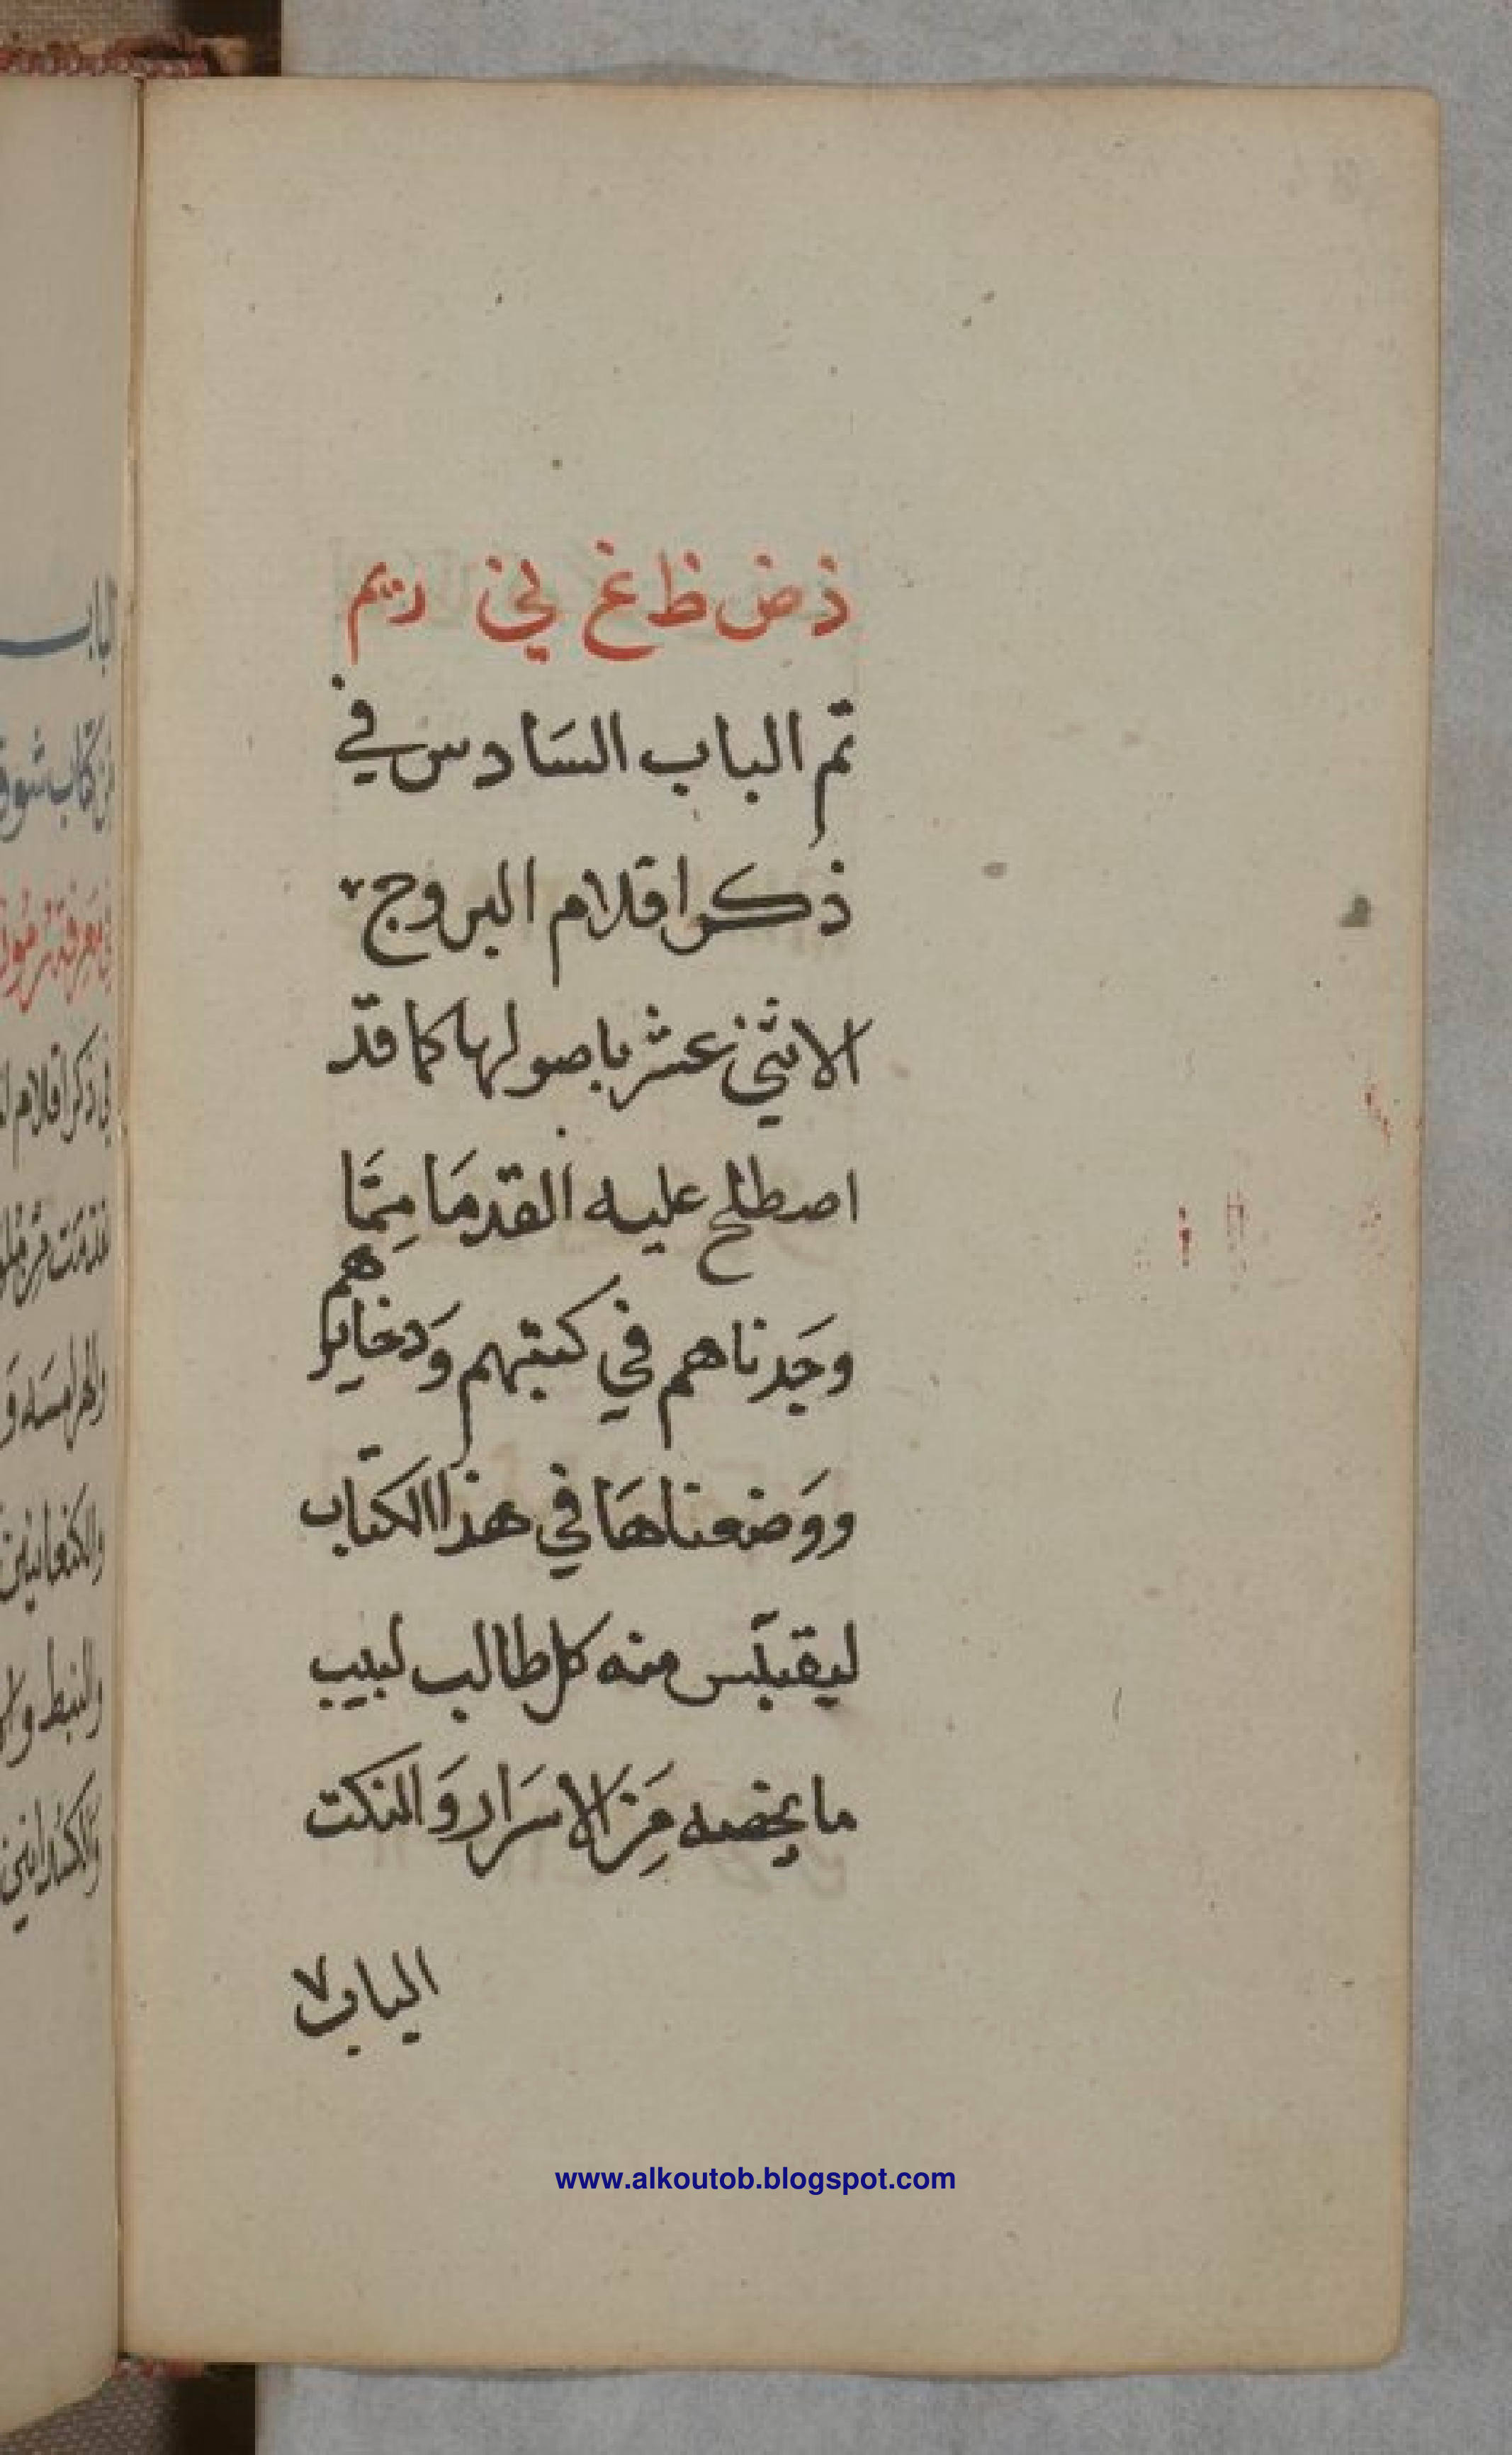 ذ ض ظ غ
تم الباب السَادس في
ذكر اقلام البروج
الاثني عشر باصولها كما قد
اصطلح عليه القدمَا مِمَّا
وجَدناهم في كتبهم وَدخايرهم
ووَضعناهَا في هذا الكتاب
ليقتبس منه كل طالب لبيب
ما يخصه مِنَ الاسَرار وَالنكت
الباب ٧
www.alkoutob.blogspot.com